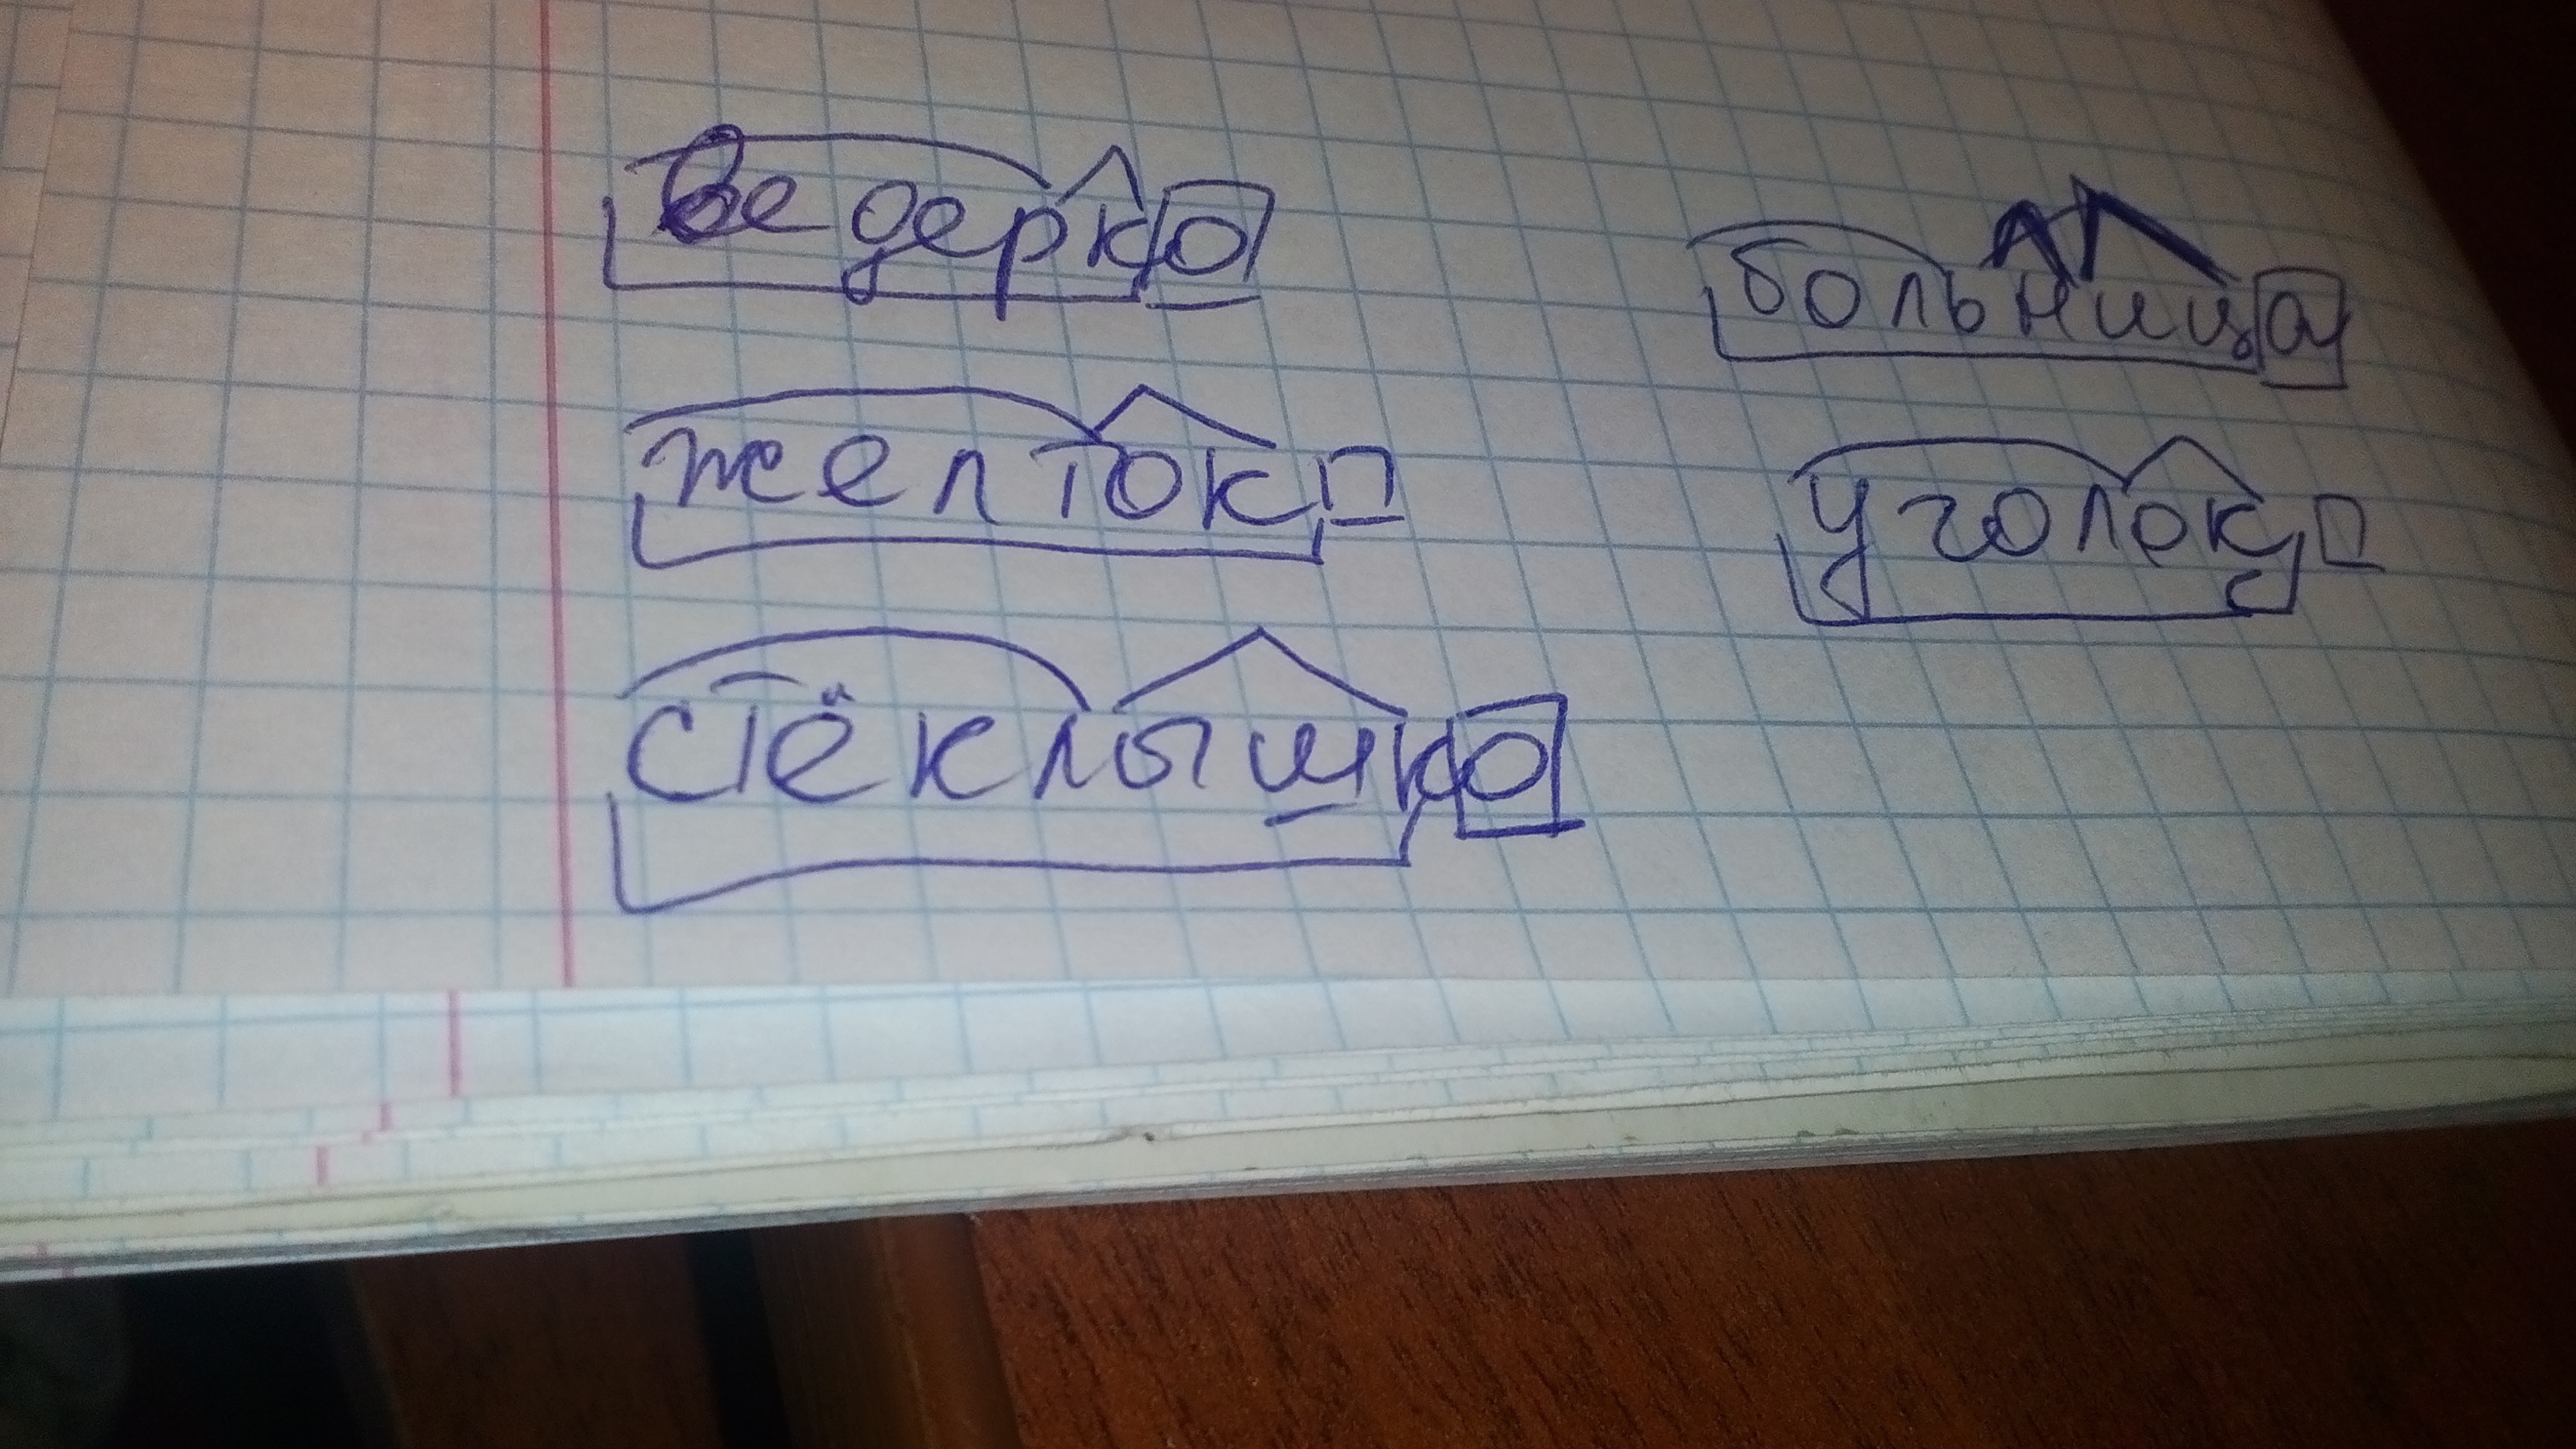 ведерко
желток
стёклышко
больница
уголок